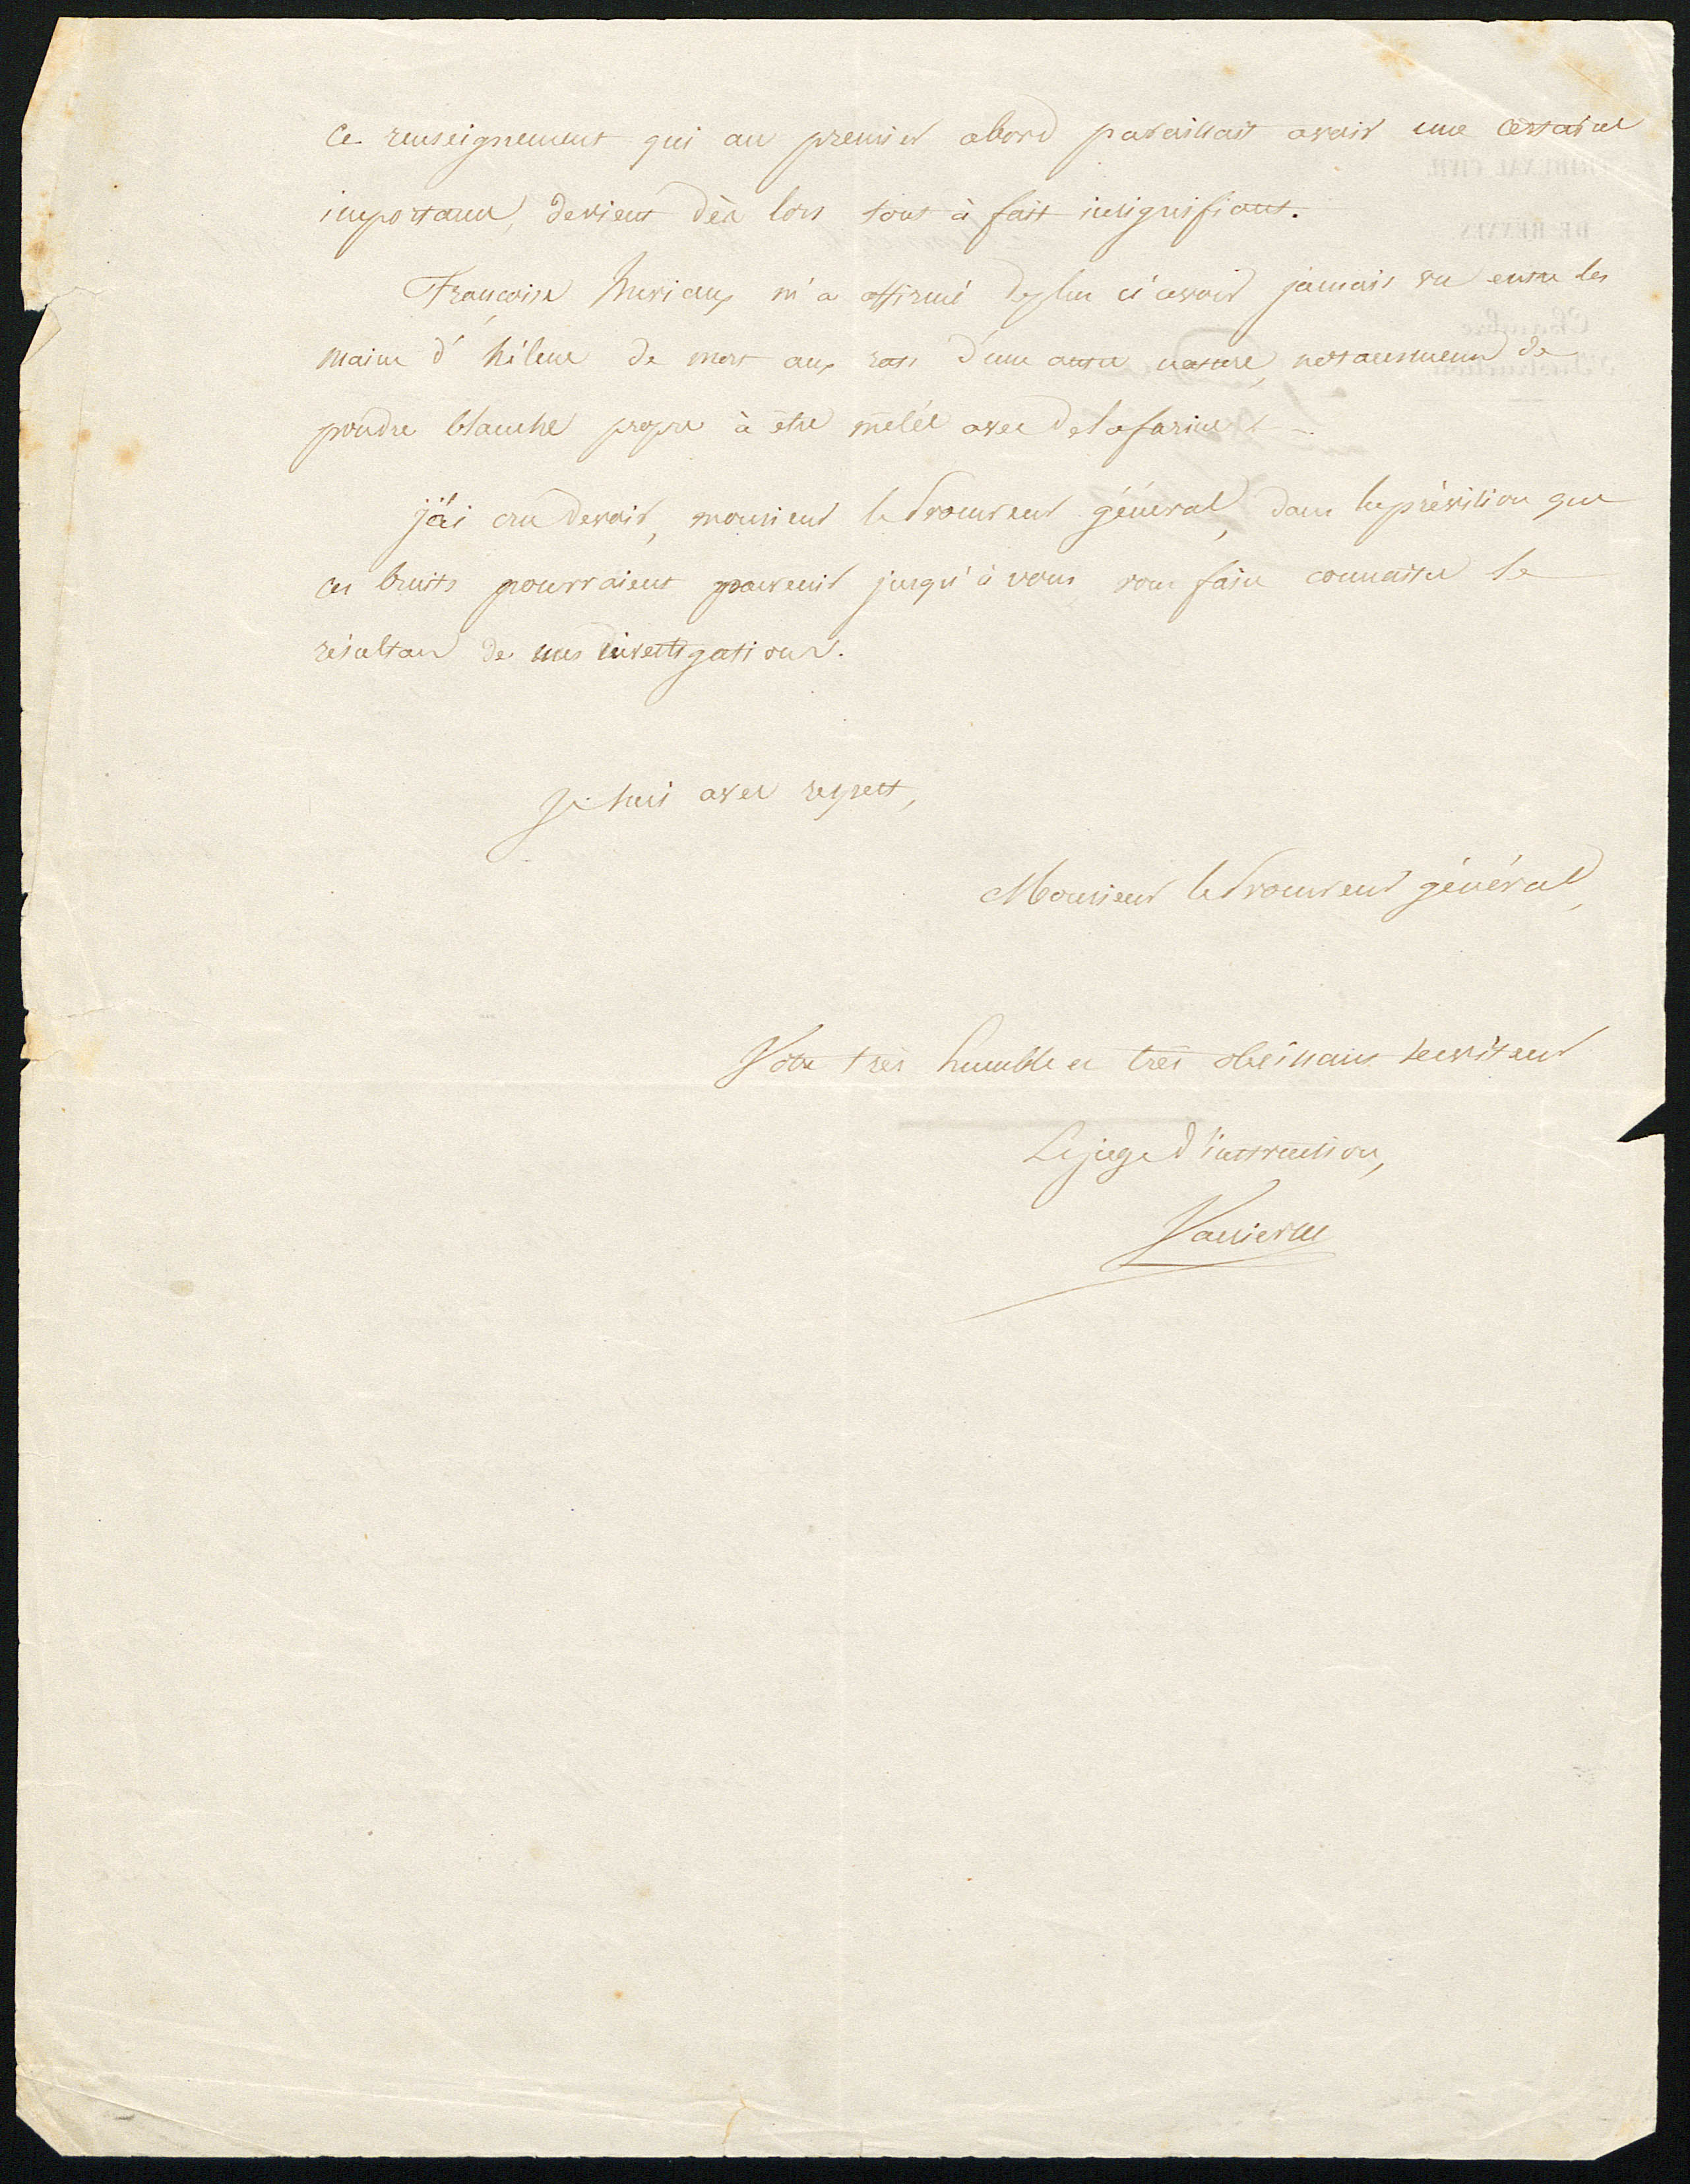 Ce renseignement qui au premier abord paraissait avoir une certaine
importance, devient dès lors tout à fait insignifiant.
Françoise huriaux m'a affirmé de plus n'avoir jamais vu entre les
mains d'hélène de mort aux rats d'une autre nature, notamment de
poudre blanche propre à être mêlée avec de la farine.
j'ai cru devoir, monsieur le Procureur général, dans la prévision que
ces bruits pourraient parvenir jusqu'à vous, vous faire connaître le
résultat de mes investigations.
Je suis avec respect,
Monsieur le Procureur général,
Votre très humble et très obéissant serviteur
Le juge d'instruction,
Vannier